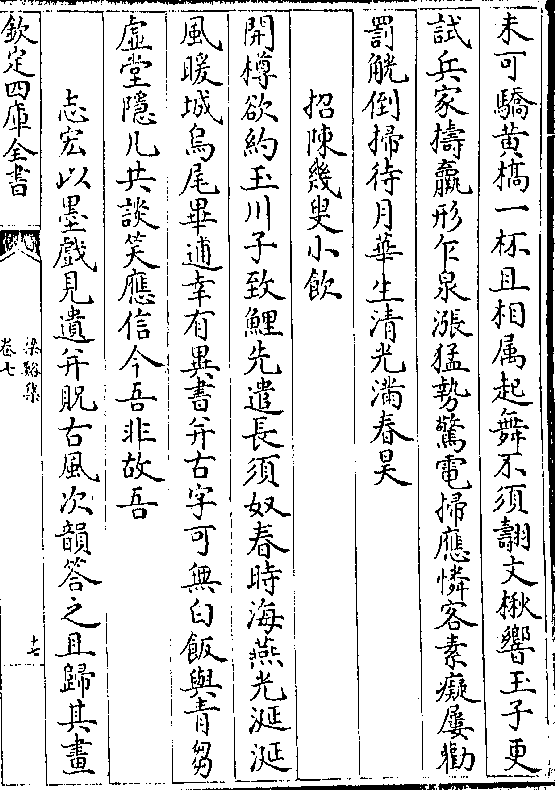 未可驕黄槁一杯且相属起舞不須翿文楸響玉子更
試兵家擣羸形乍泉漲猛勢驚電掃應憐客素癡屢勸
罰觥倒掃待月華生清光滿春昊
招陳幾叟小飲
開樽欲約玉川子致鯉先遣長須奴春時海燕光涎涎
風暖城烏尾畢逋幸有異書并古字可無白飯與青芻
虚堂隱几共談笑應信今吾非故吾
志宏以墨戲見遺并貺古風次韻答之且歸其畫
欽定四庫全書
梁谿集
卷七
十七